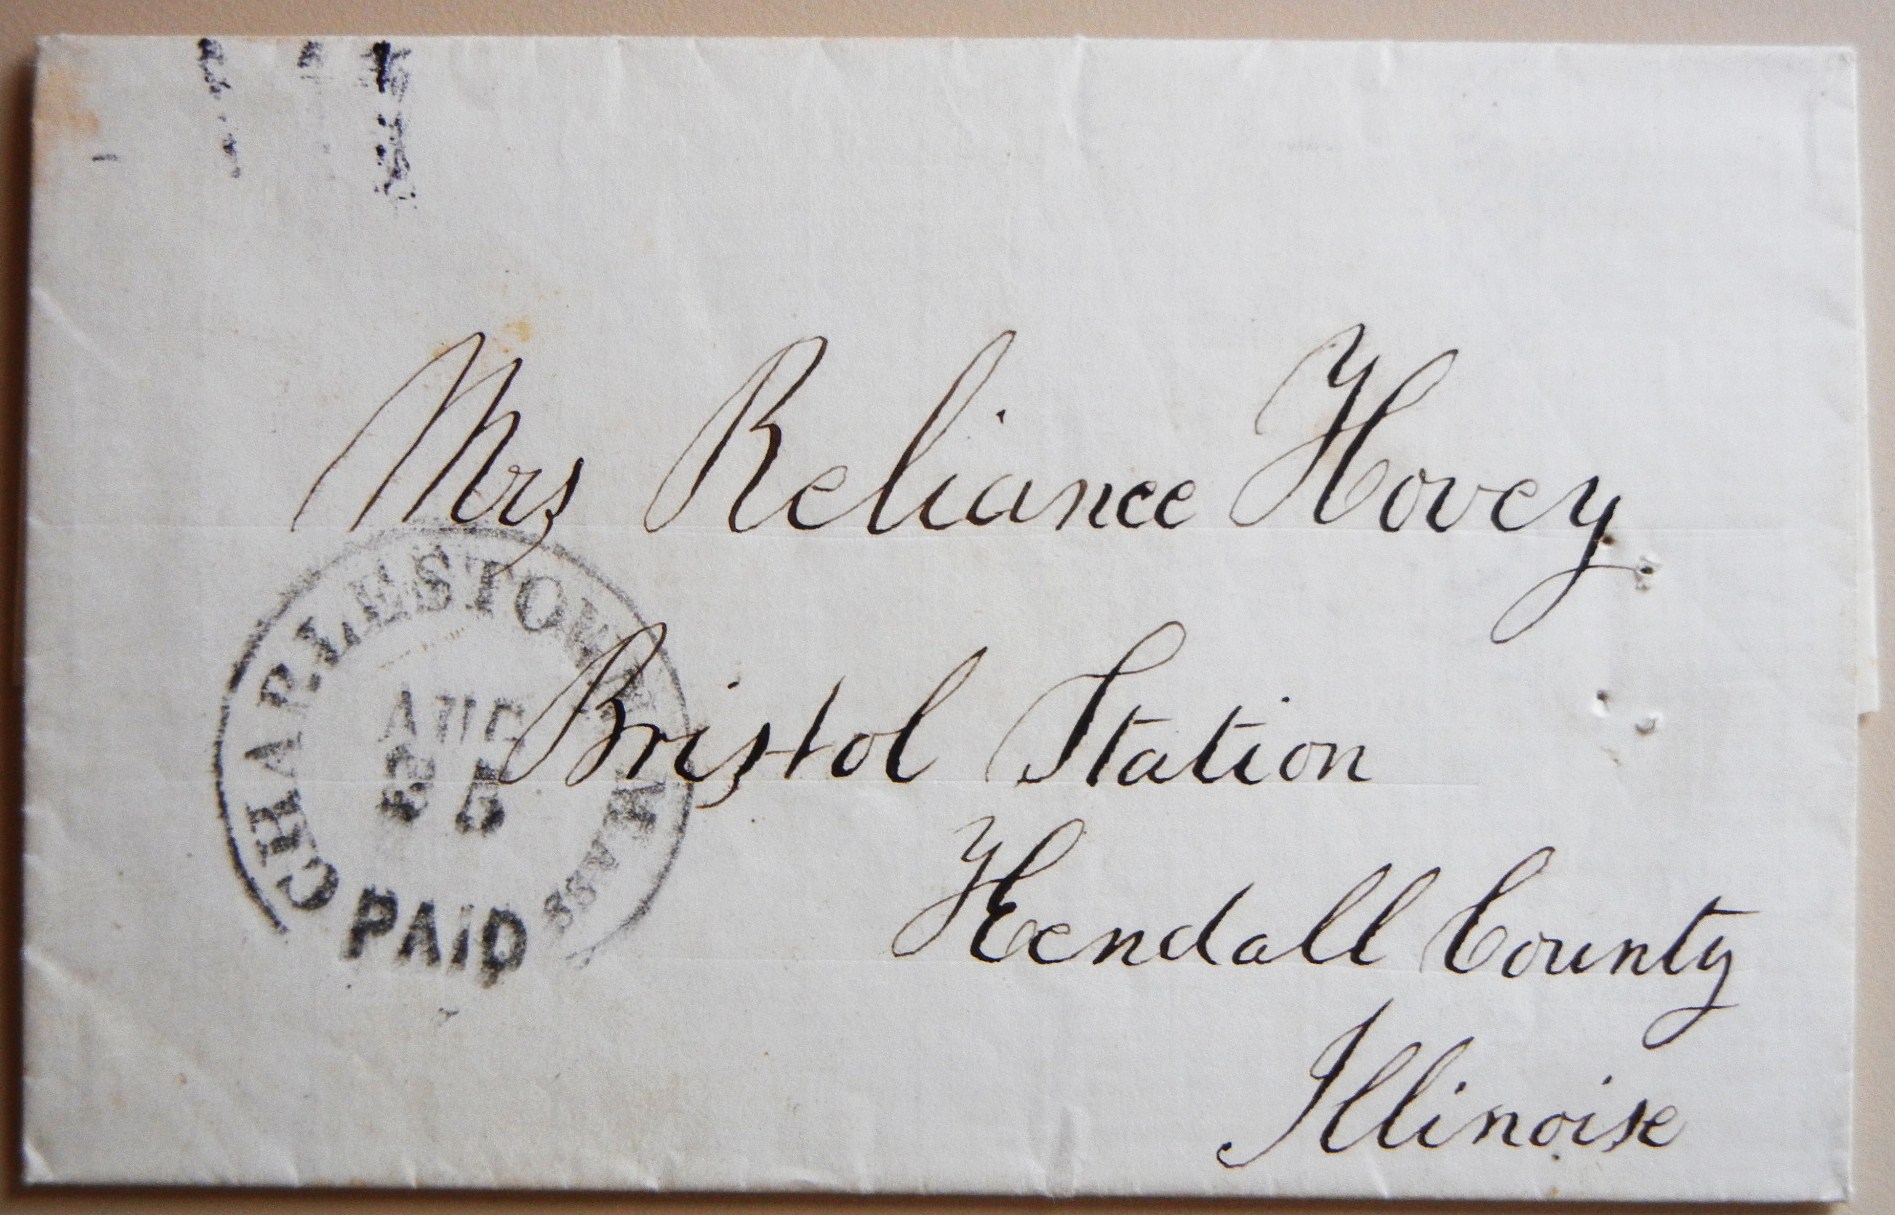 Mrs Reliance Hovey
Bristol Station
Kendall County
Illinoise
CHARLESTOWN MASS
AUG
25
PAID